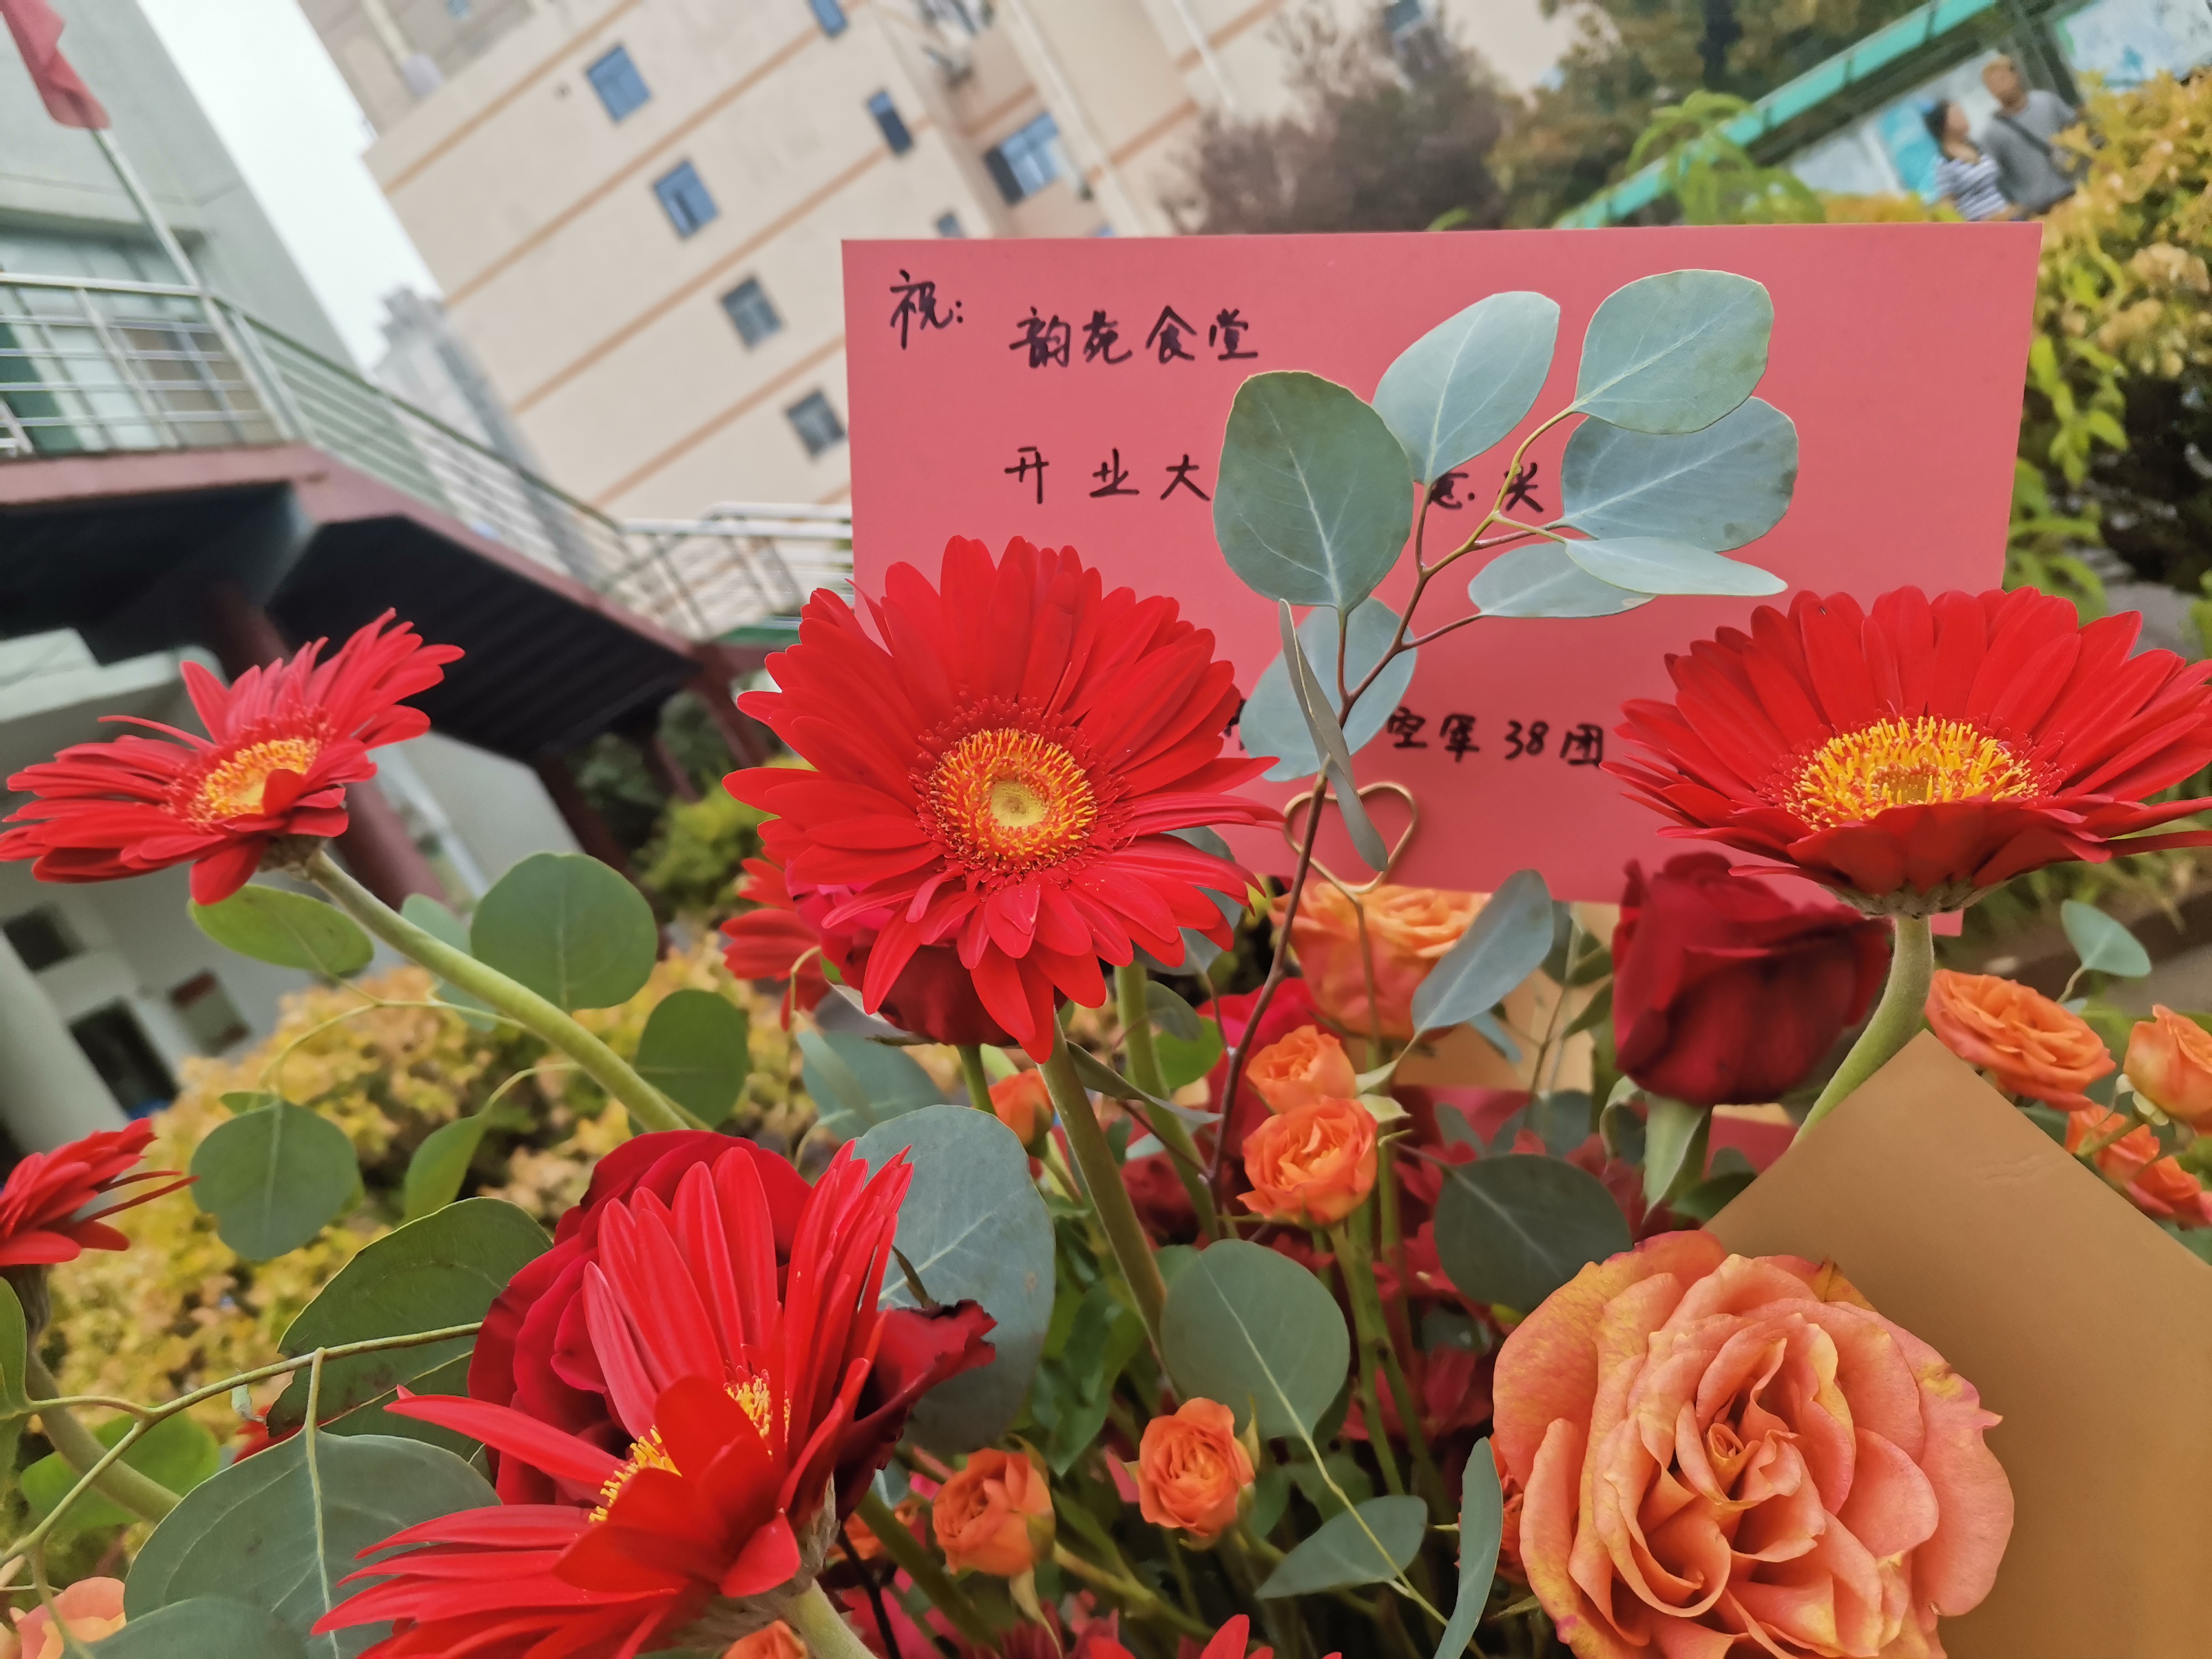 祝:
韵苑食堂
开业大
空军38团